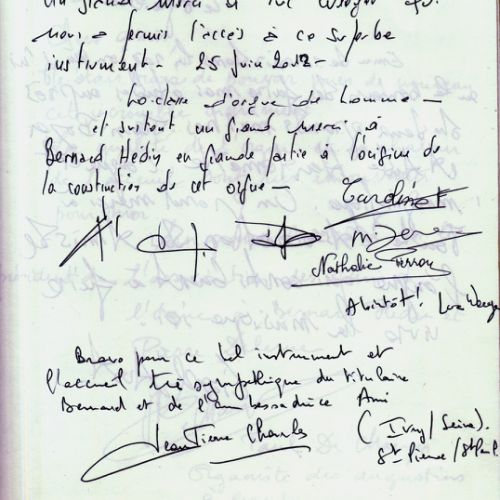 Un grand merci à Luc
nous a permis l'accès à ce superbe
instrument - 25 juin 2012 -
La classe d'orgue de Lomme -
et surtout un grand merci à
Bernard Hédin en grande partie à l'origine de
la construction de cet orgue -
Nathalie
A bientôt! Luc
Bravo pour ce bel instrument et
l'accueil très sympathique du titulaire
Bernard et de l'ambassadrice Ami
Jean Pierre Charles
(Ivry/Seine).
St Pierre / St Paul